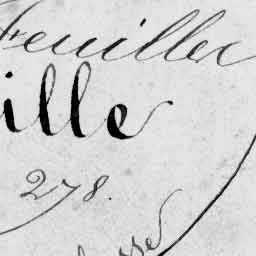 Feuillet
ille
278.